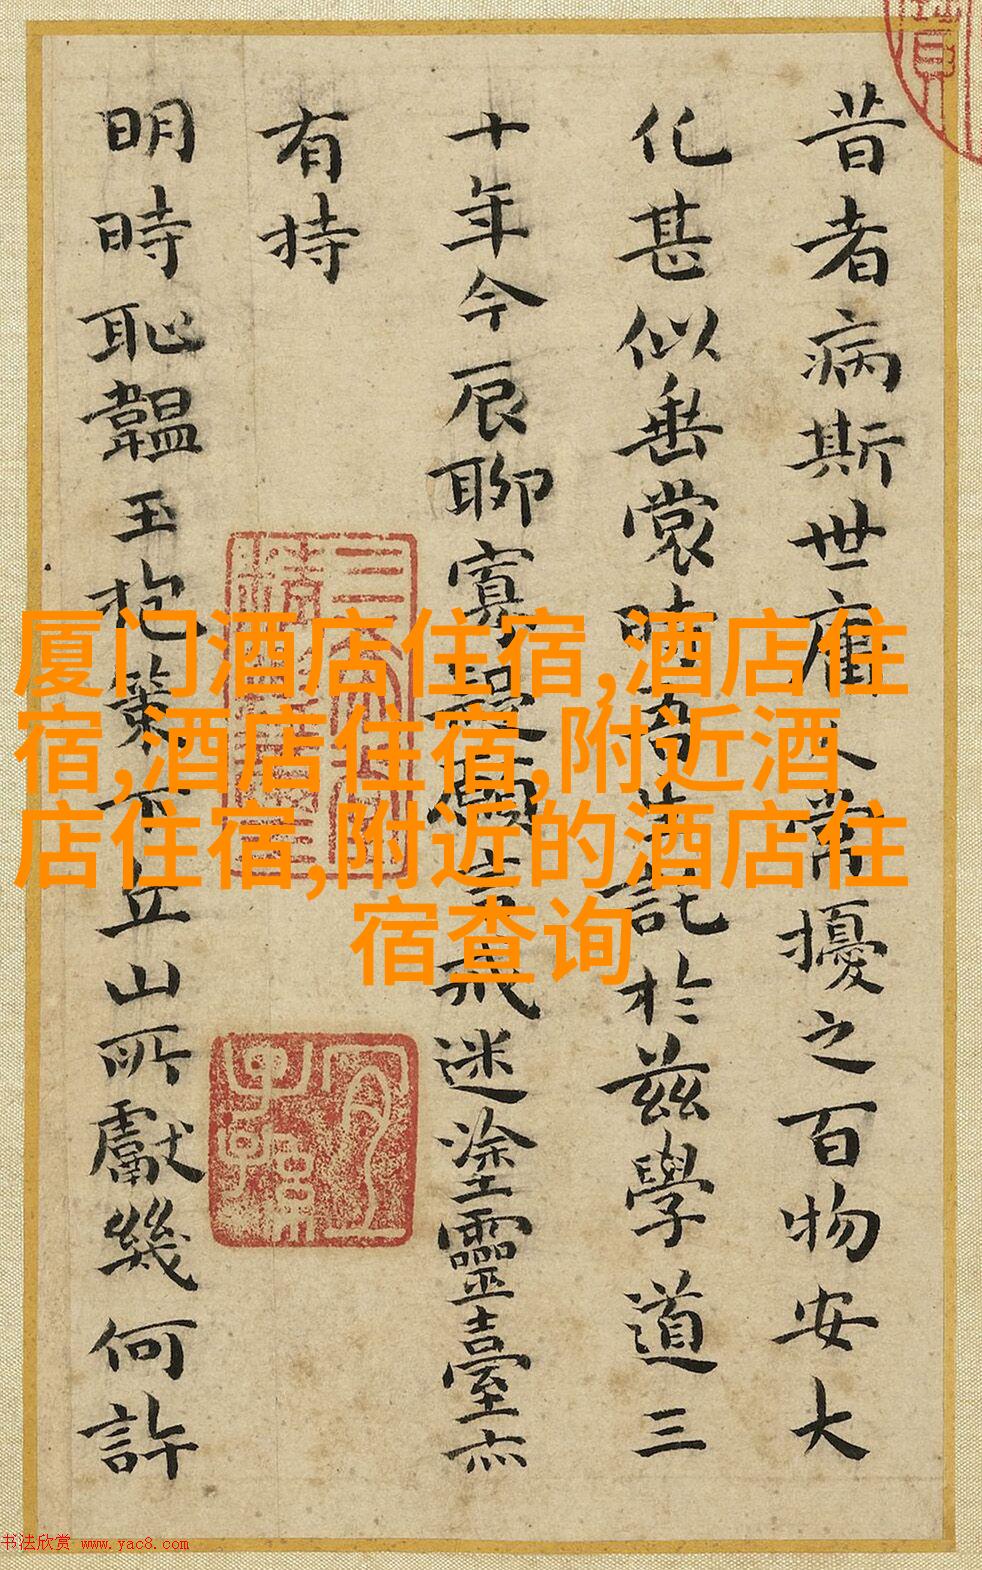 昔者病斯世人常擾之百物安大
化甚似垂裳時託於茲學道三
十年今辰聊寓言戒迷塗靈臺亦
有持
明時恥韞玉抱策丘山所獻幾何許
厦门酒店住宿,酒店住
宿,酒店住宿,附近酒
店住宿,附近的酒店住
宿查询
书法欣赏 www.yac8.com